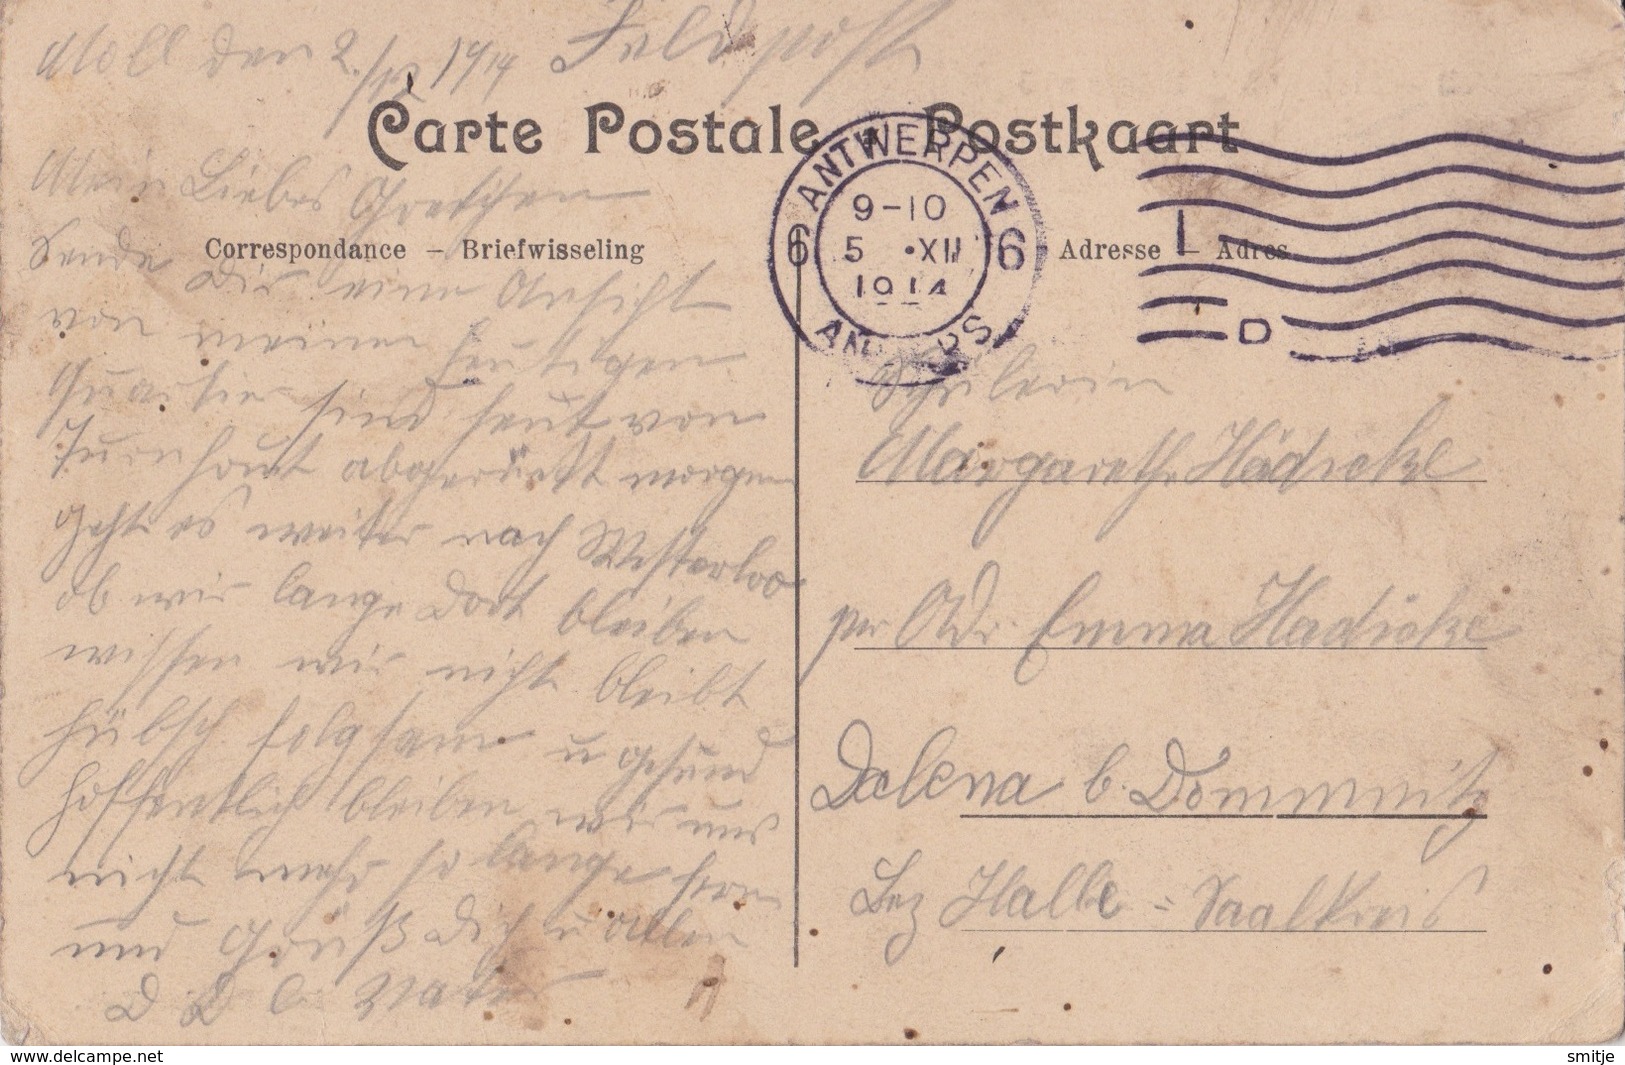 Moll den 2./12 1914 Feldpost
Carte Postale Postkaart
Correspondance – Briefwisseling
Adresse – Adres
ANTWERPEN
9-10
5 XII
1914
6 6
Mein Liebes Gretchen
Sende Dir eine Ansicht
von meinen heutigen
Quartier sind heut von
Turnhout abgerückt morgen
geht es weiter nach Westerloo
ob wir lange dort bleiben
wissen wir nicht bleibt
hübsch folgsam u gesund
hoffentlich bleiben wir uns
nicht mehr so lange fern
und Grüß Dich u allen
D D l. Vater
Schülerin
Margarethe Hädicke
per Adr. Emma Hädicke
Dalena b. Dommnitz
Bez Halle - Saalkreis
www.delcampe.net
smitje